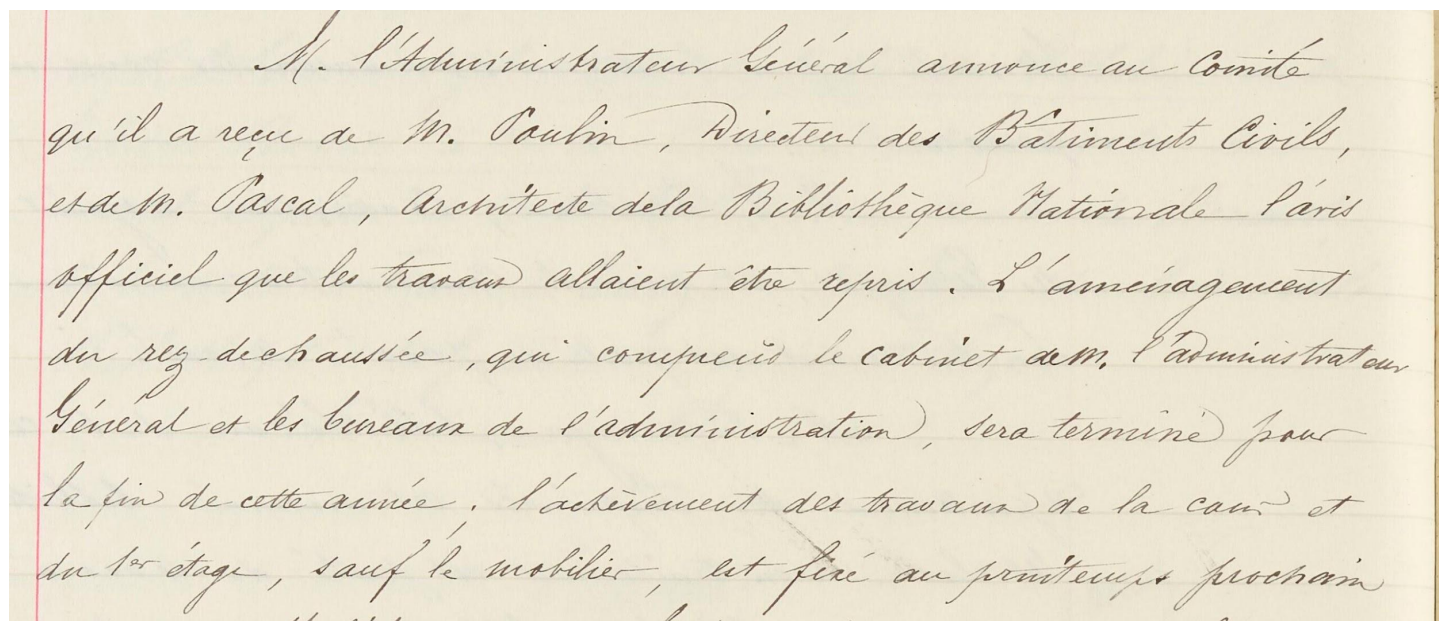 M. l'Administrateur Général annonce au Comité
qu'il a reçu de M. Poulin, Directeur des Bâtiments Civils,
et de M. Pascal, Architecte de la Bibliothèque Nationale l'avis
officiel que les travaux allaient être repris. L'aménagement
du rez de chaussée, qui comprend le cabinet de M. l'administrateur
Général et les bureaux de l'administration, sera terminé pour
la fin de cette année ; l'achèvement des travaux de la cour et
du 1er étage, sauf le mobilier, est fixé au printemps prochain